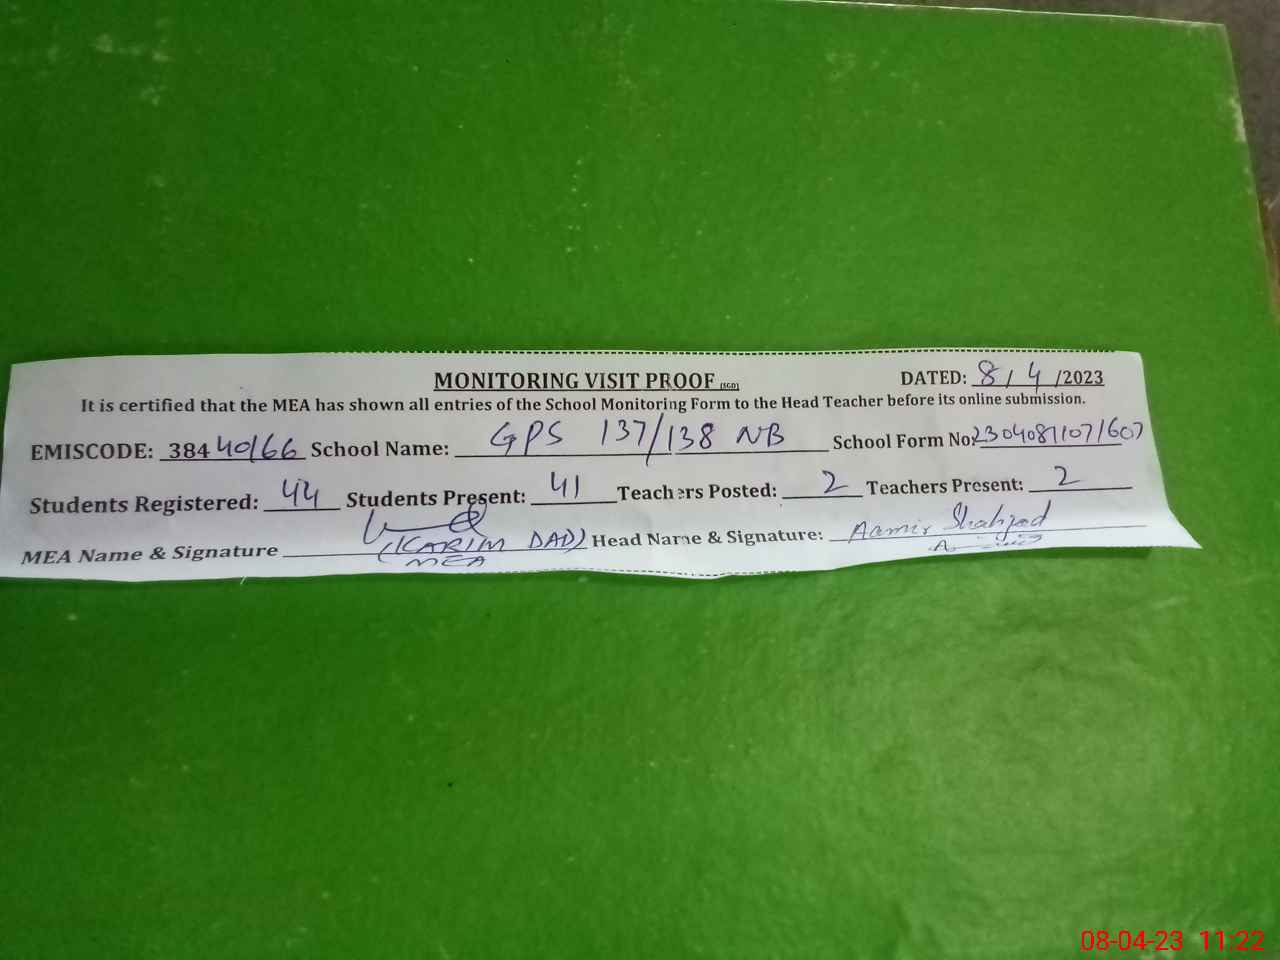 MONITORING VISIT PROOF (SGD)
DATED: 8/4/2023
It is certified that the MEA has shown all entries of the School Monitoring Form to the Head Teacher before its online submission.
EMISCODE: 38440166 School Name: GPS 137/138 NB School Form No: 23040811071607
Students Registered: 44 Students Present: 41 Teachers Posted: 2 Teachers Present: 2
MEA Name & Signature (KARIM DAD) Head Name & Signature: Aamir Shahzad
MEA
08-04-23 11:22